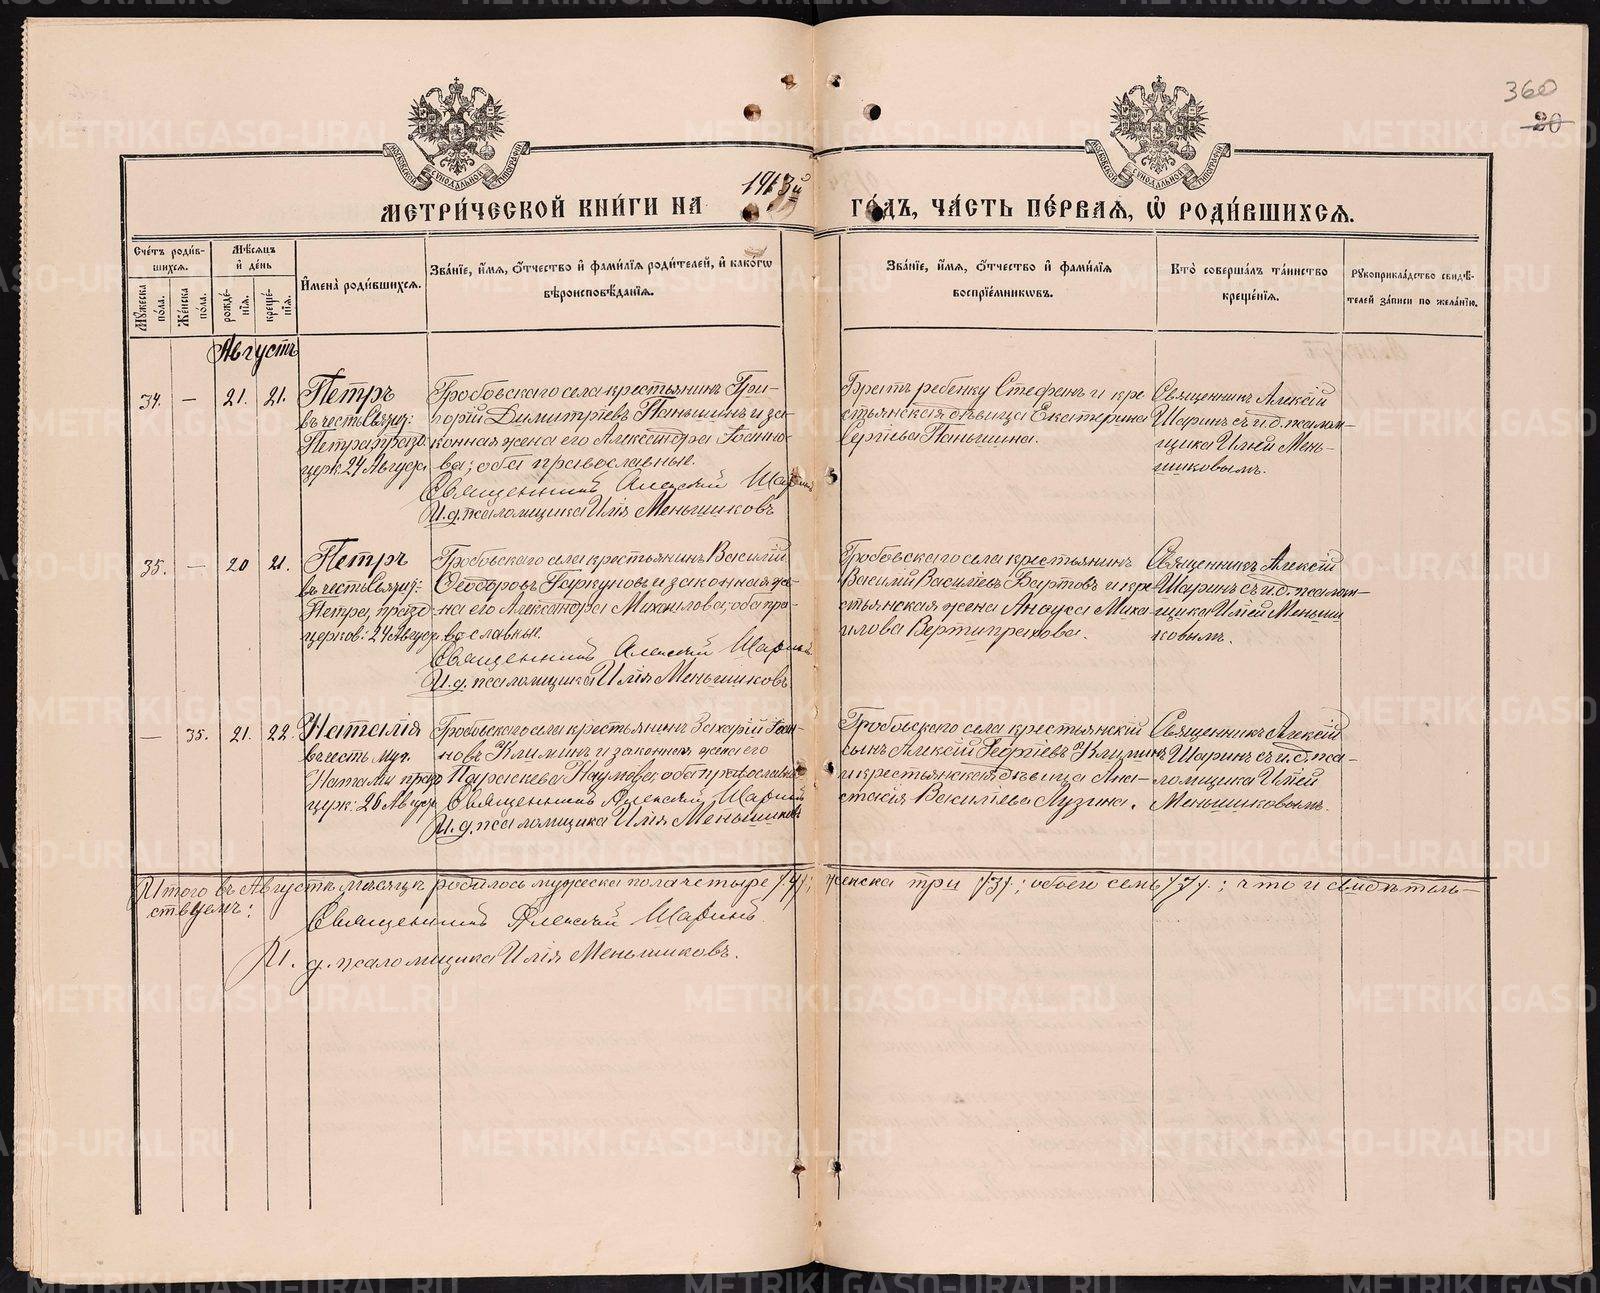 360
20
МОСКОВСКОЙ СѴНОДАЛЬНОЙ ТИПОГРАФІИ
МОСКОВСКОЙ СѴНОДАЛЬНОЙ ТИПОГРАФІИ
МЕТРИ́ЧЕСКОЙ КНИ́ГИ НА 1913й ГО́ДЪ, ЧА́СТЬ ПЕ́РВАЯ, Ѽ РОДИ́ВШИХСЯ.
Сче́тъ роди́вшихся.
Му́жеска по́ла.
Же́нска по́ла.
Мѣ́сяцъ и҆ де́нь
рожде́нїя.
креще́нїя.
И҆мена̀ роди́вшихся.
Зва́нїе, и҆́мя, ѻ҆́тчество и҆ фами́лїя роди́телей, и҆ како́гѡ вѣроисповѣ́данїя.
Зва́нїе, и҆́мя, ѻ҆́тчество и҆ фами́лїя воспрїе́мникѡвъ.
Кто̀ соверша́лъ та́инство креще́нїя.
Рꙋкоприкла́дство свидѣ́телей за́писи по жела́нїю.
Августъ
34. — 21. 21.
Петръ
въ честь Свящ:
Петра, празд.
церк. 24 Августа
Гробовскаго села крестьянинъ Гри-
горій Димитріевъ Паньшинъ и за-
конная жена его Александра Іоанно-
ва; оба православные.
Священникъ Алексій Шаринъ
И. д. псаломщика Илія Меньшиковъ
Братъ ребенку Стефанъ и кре-
стьянская дѣвица Екатерина
Сергіева Паньшина.
Священникъ Алексій
Шаринъ съ и. д. псалом-
щика Иліей Мень-
шиковымъ.
35. — 20 21.
Петръ
въ честь Свящ:
Петра, празд.
церков: 24 Августа
Гробовскаго села крестьянинъ Василій
Ѳеодоровъ Чаркуновъ и законная же-
на его Александра Михаилова; оба пра-
вославные.
Священникъ Алексій Шаринъ
И. д. псаломщика Илія Меньшиковъ
Гробовскаго села крестьянинъ
Василій Василіевъ Бартовъ и кре-
стьянская жена Михаи-
лова Вертипрахова.
Священникъ Алексій
Шаринъ съ и. д. псалом-
щика Иліей Меньши-
ковымъ.
— 35. 21. 22.
Наталія
въ честь муч.
Наталіи, празд
церк: 26 Августа
Гробовскаго села крестьянинъ Захарій Іоан-
новъ Климинъ и законная жена его
Наумова; оба православные.
Священникъ Алексій Шаринъ
И. д. псаломщика Илія Меньшиковъ
Гробовскаго села крестьянскій
сынъ Алексій Георгіевъ Климинъ
и крестьянская дѣвица Ана-
стасія Василіева Лузина.
Священникъ Алексій
Шаринъ съ и. д. пса-
ломщика Иліей
Меньшиковымъ.
Итого въ Августѣ мѣсяцѣ родилось мужеска пола четыре /4/; женска три /3/; обоего семь /7/.; что и свидѣтель-
ствуемъ:
Священникъ Алексій Шаринъ.
И. д. псаломщика Илія Меньшиковъ.
METRIKI.GASO-URAL.RU